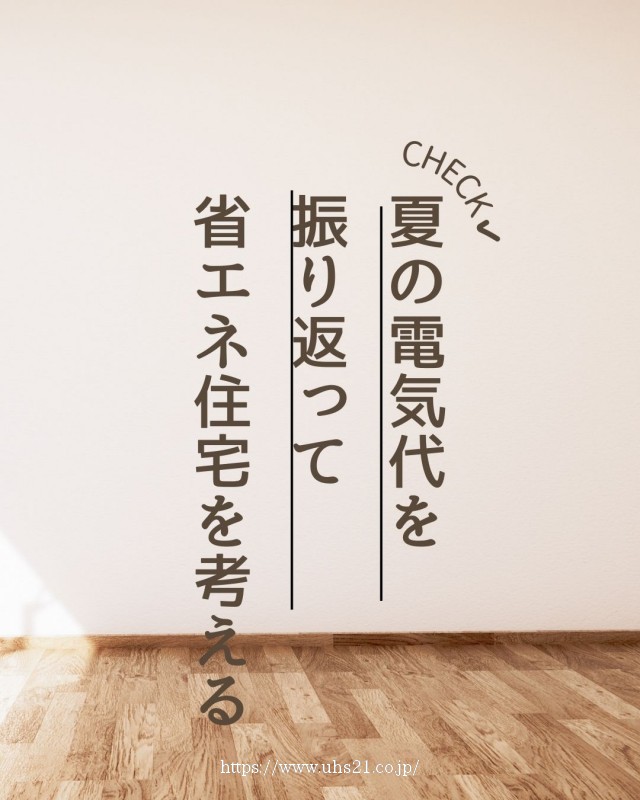 CHECK
夏の電気代を
振り返って
省エネ住宅を考える
https://www.uhs21.co.jp/